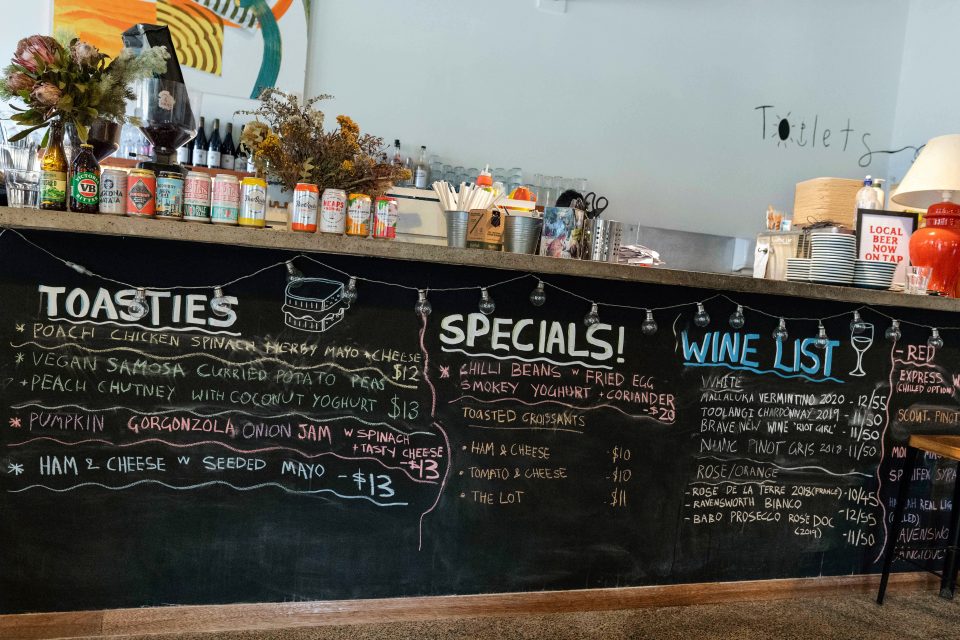 Toilets
VICTORIA
VB
HEAPS
LOCAL
BEER NOW
ON TAP
TOASTIES
* POACH CHICKEN SPINACH HERBY MAYO + CHEESE
$12
* VEGAN SAMOSA CURRIED POTATO PEAS
+ PEACH CHUTNEY WITH COCONUT YOGHURT $13
* PUMPKIN GORGONZOLA ONION JAM W SPINACH
+ TASTY CHEESE
-$13
* HAM & CHEESE W SEEDED MAYO -$13
SPECIALS!
* CHILLI BEANS W FRIED EGG
SMOKEY YOGHURT + CORIANDER
-$20
TOASTED CROISSANTS
• HAM & CHEESE -$10
• TOMATO & CHEESE -$10
• THE LOT $11
WINE LIST
WHITE
MALLALUKA VERMINTINO 2020 - 12/55
TOOLANGI CHARDONNAY 2019 - 11/50
BRAVE NEW WINE "RIOT GIRL" - 11/50
PINOT GRIS 2018 - 11/50
ROSE/ORANGE
- ROSE DE LA TERRE 2018 (FRANCE) - 10/45
- RAVENSWORTH BIANCO
- 12/55
- BABO PROSECCO ROSE DOC
(2019) - 11/50
- RED
EXPRESS
(CHILLED OPTION)
SCOUT PINOT
REAL